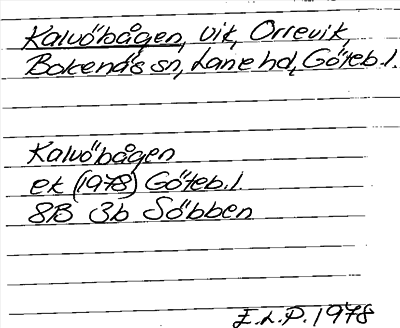 Kalvöbågen, vik, Orrevik,
Bokenäs sn, Lane hd, Göteb. l.
Kalvöbågen
ek (1978) Göteb. l.
8B 3b Söbben
E.L.P. 1978